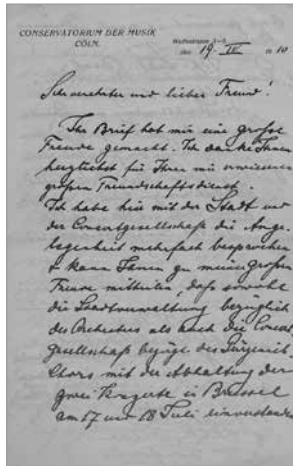 CONSERVATORIUM DER MUSIK
CÖLN.
Wolfsstrasse 3-5.
den 19. IV 1910
Sehr verehrter und lieber Freund!
Ihr Brief hat mir eine große
Freude gemacht. Ich danke Ihnen
herzlichst für Ihren mir erwiesenen
großen Freundschaftsdienst.
Ich habe hier mit der Stadt und
der Concertgesellschaft die Ange-
legenheit mehrfach besprochen
& kann Ihnen zu meiner großen
Freude mitteilen, daß sowohl
die Stadtverwaltung bezüglich
des Orchesters als auch die Concert
gesellschaft bezügl. des Gürzenich
Chors mit der Abhaltung der
zwei Konzerte in Brüssel
am 17 und 18 Juli einverstanden